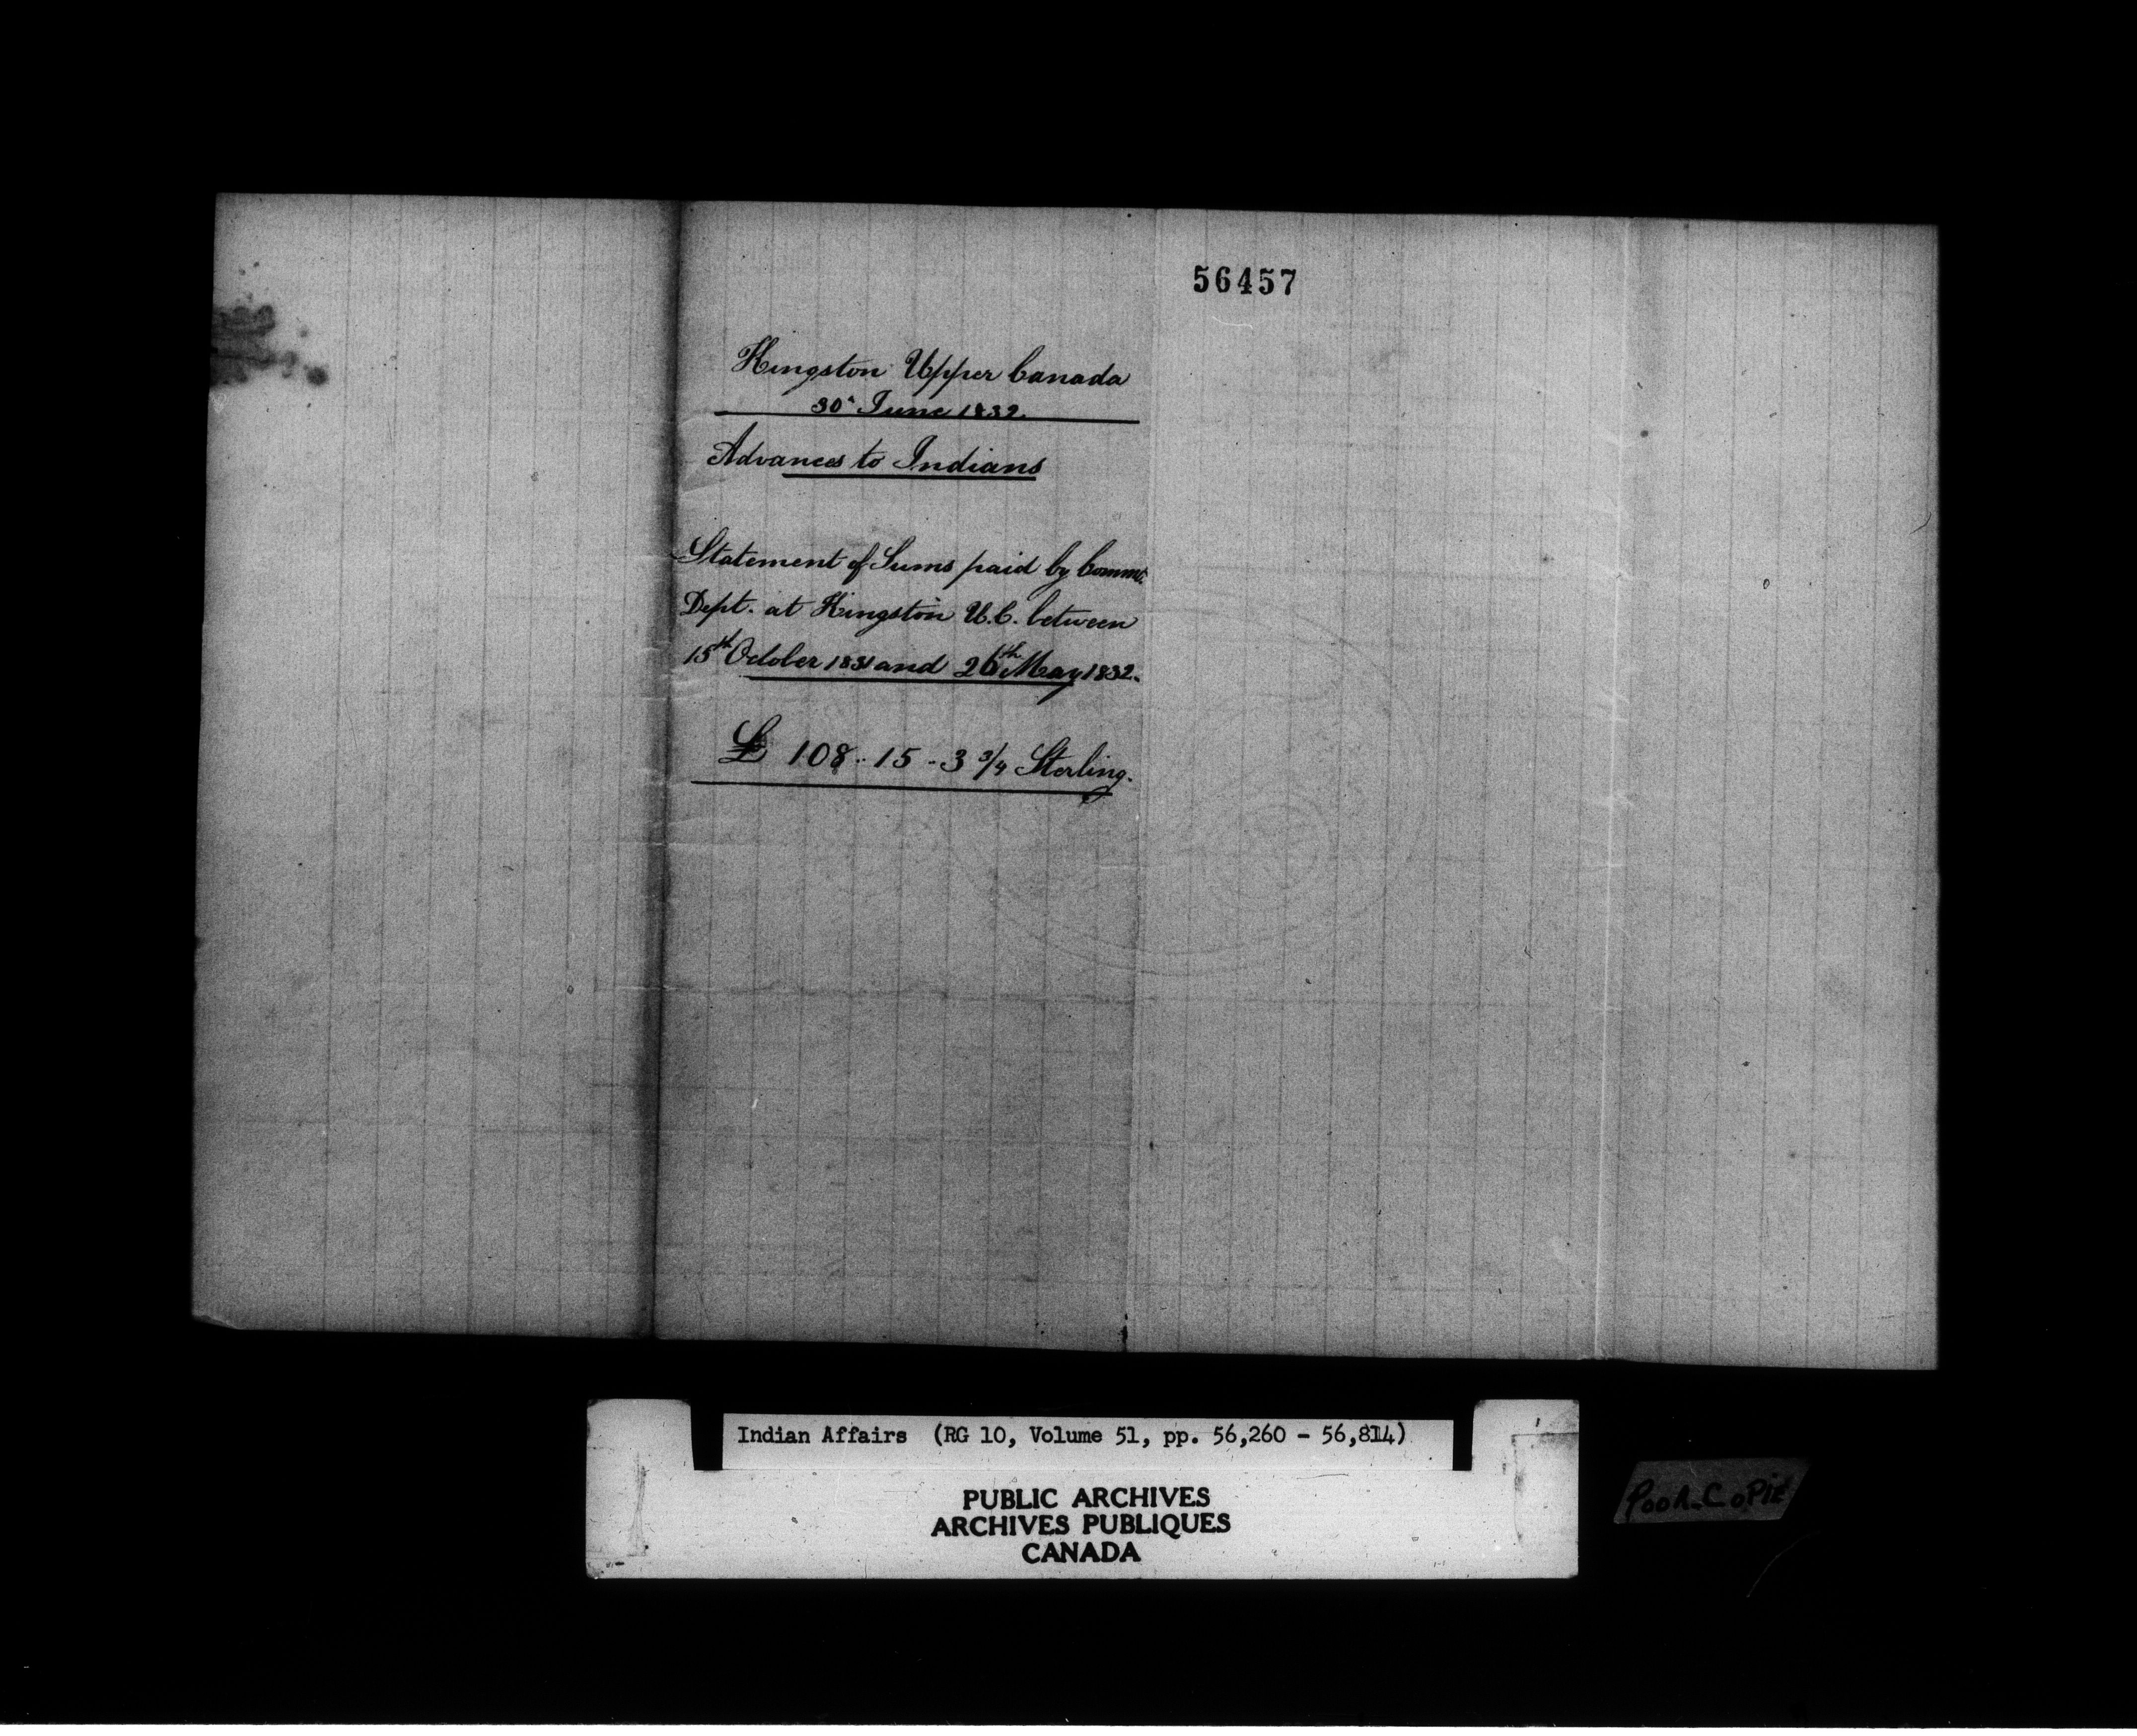 56457
Kingston Upper Canada
30th June 1832.
Advances to Indians
Statement of Sums paid by Commt.
Dept. at Kingston U.C. between
15th October 1831 and 26th May 1832.
£ 108..15-3 3/4 Sterling.
Indian Affairs (RG 10, Volume 51, pp. 56,260 - 56,814)
PUBLIC ARCHIVES
ARCHIVES PUBLIQUES
CANADA
POOR COPIE